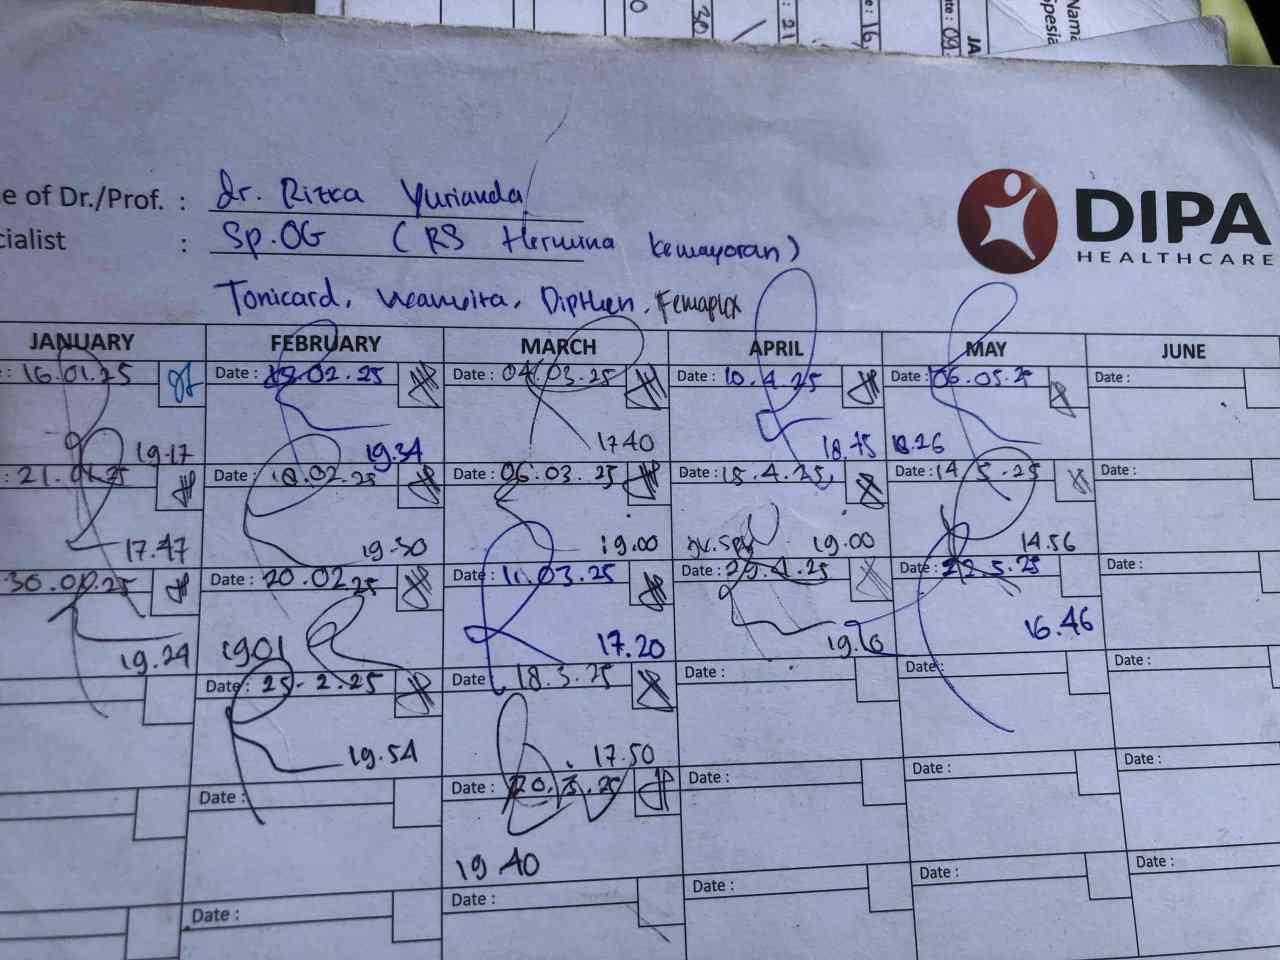 30
: 21
e : 16,
te : 09.
JA
Nama
Spesia
e of Dr./Prof. : dr. Rizka Yurianda
cialist : Sp.OG (RS Hermina Kemayoran)
DIPA
HEALTHCARE
Tonicard, Diphen, Femaplex
JANUARY FEBRUARY MARCH APRIL MAY JUNE
: 16.01.25 Date : .02.25 Date : 04.03.25 Date : 10.4.25 Date : 06.05.25 Date :
19.17 19.34 17.40 18.45 18.26
: 21.01.25 Date : 18.02.25 Date : 06.03.25 Date : 15.4.25 Date : 14.5.25 Date :
17.47 19.30 19.00 19.00 14.56
30.01.25 Date : 20.02.25 Date : 11.03.25 Date : 29.4.25 Date : 22.5.25 Date :
19.24 1901 17.20 19.10 16.46
Date : 25-2.25 Date : 18.3.25 Date : Date : Date :
19.54 17.50
Date : Date : 20.3.25 Date : Date : Date :
19 40
Date : Date : Date : Date : Date :